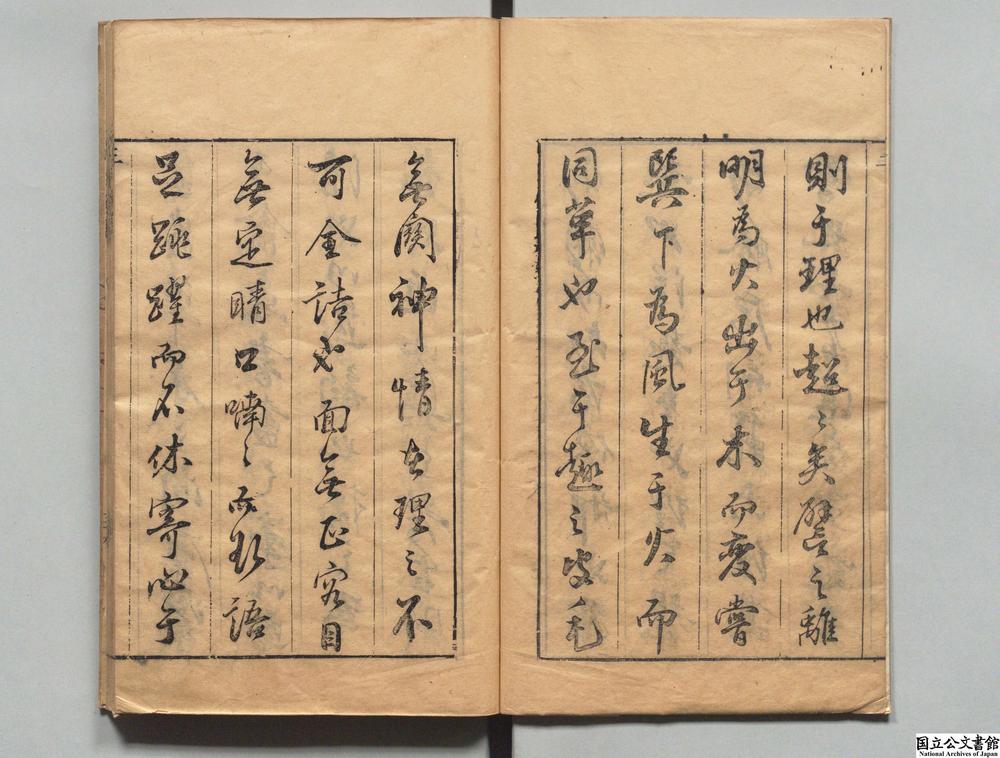 則于理也超〻矣譬之離
明為火出于木而嘗
巽下為風生于火而
同革也至于趣之皮毛
無関神情理之不
可詰也面無正容目
無定睛口喃〻而欲語
足跳躍而不休寄心于
国立公文書館
National Archives of Japan